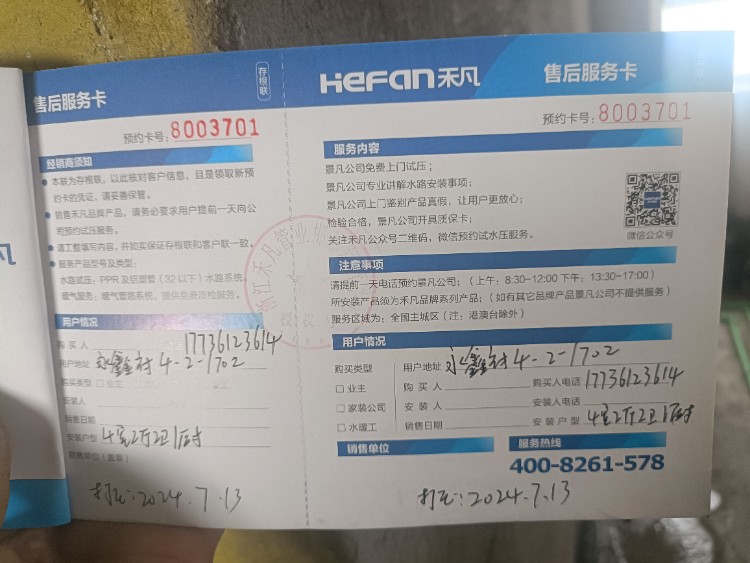 售后服务卡
存根联
预约卡号:8003701
经销商须知
● 本联为存根联,以此核对客户信息,且是领取新预
约卡的凭证,请妥善保管。
● 销售禾凡品牌产品,请务必要求用户提前一天向公
司预约试压服务。
● 请工整填写内容,并如实保证存根联和客户联一致。
● 服务产品型号及类型:
水路试压:PPR及铝塑管(32以下)水路系统。
暖气服务:暖气管路系统,提供免费质检服务。
用户情况
购买人 17736123614
用户地址 永鑫村4-2-1702
购买类型 □业主
安装人
销售日期
安装户型 4室2厅2卫1厨
销售单位(盖章)
打压:2024.7.13
HeFan禾凡
售后服务卡
预约卡号:8003701
服务内容
景凡公司免费上门试压;
景凡公司专业讲解水路安装事项;
景凡公司上门鉴别产品真假,让用户更放心;
检验合格,景凡公司开具质保卡;
关注禾凡公众号二维码,微信预约试水压服务。
微信公众号
注意事项
请提前一天电话预约景凡公司;(上午:8:30-12:00 下午:13:30-17:00)
所安装产品须为禾凡品牌系列产品;(如有其它品牌产品景凡公司不提供服务)
服务区域为:全国主城区(注:港澳台除外)
用户情况
购买类型 用户地址 永鑫村4-2-1702
□业主 购买人 购买人电话 17736123614
□家装公司 安装人 安装人电话
□水暖工 销售日期 安装户型 4室2厅2卫1厨
销售单位
服务热线
400-8261-578
打压:2024.7.13